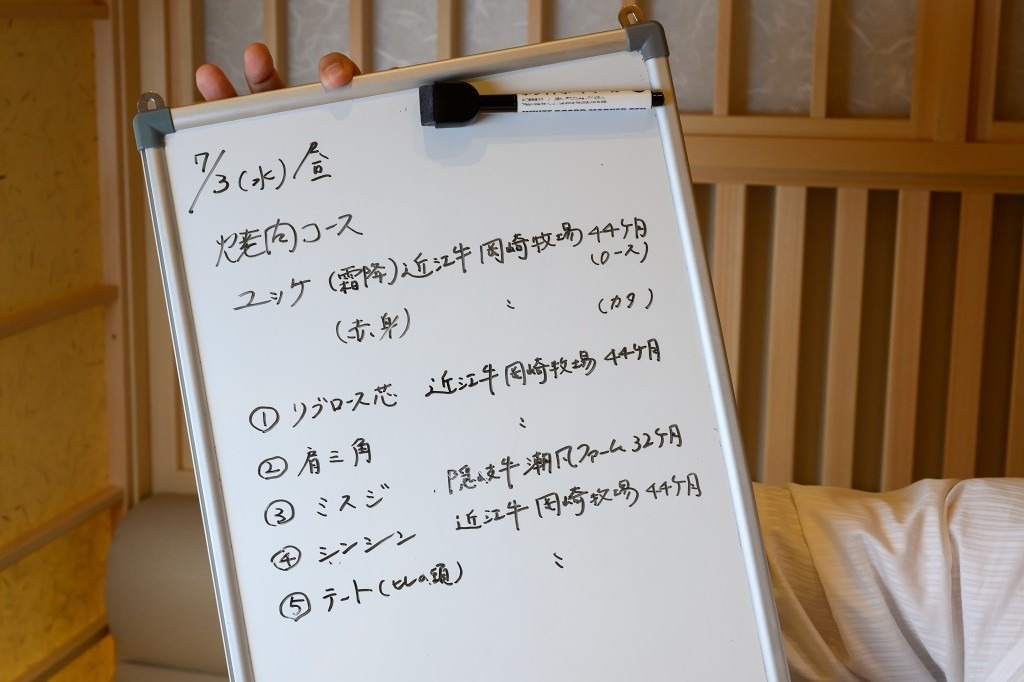 7/3(水)昼
焼肉コース
ユッケ (霜降)近江牛 岡崎牧場 44ヶ月
(ロース)
(赤身) 〃 (カタ)
① リブロース芯 近江牛 岡崎牧場 44ヶ月
② 肩三角 〃
③ ミスジ 隠岐牛 潮風ファーム 32ヶ月
④ シンシン 近江牛 岡崎牧場 44ヶ月
⑤ テート(ヒレの頭) 〃